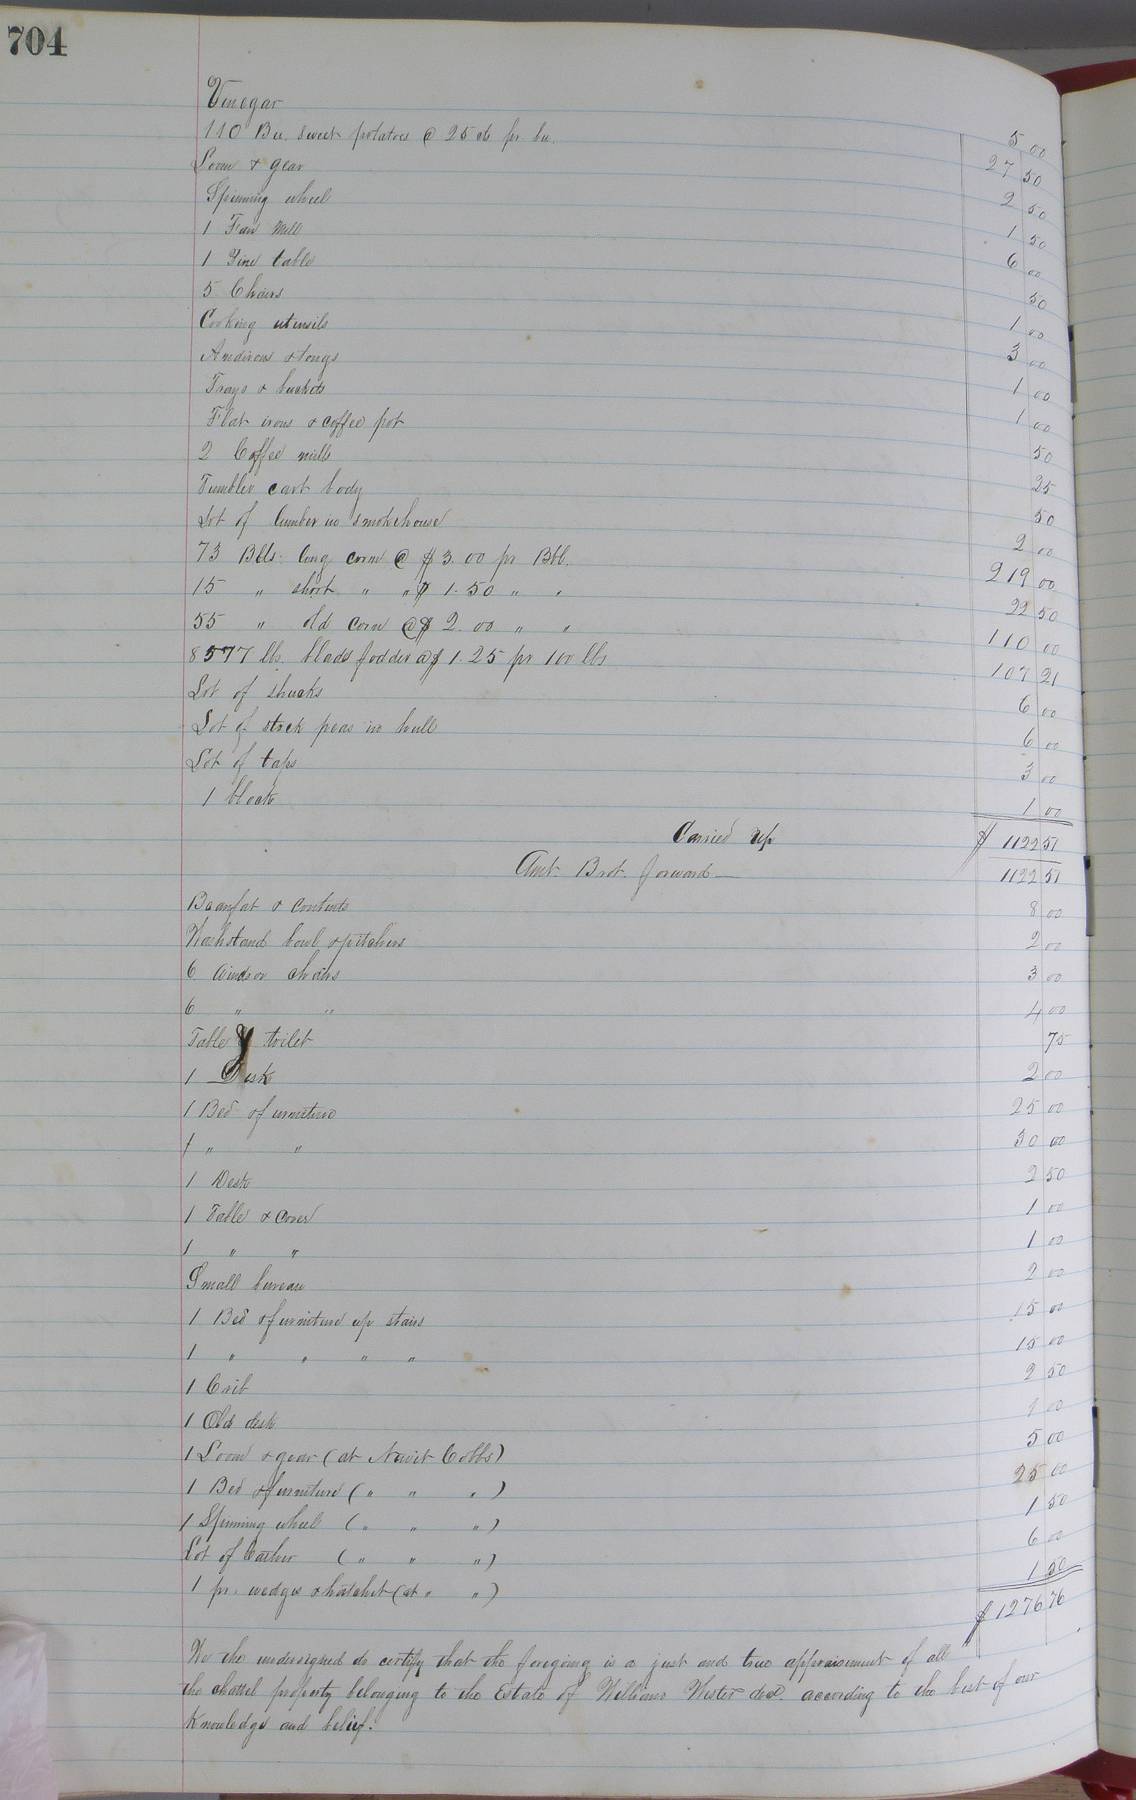 704
Vinegar 5 00
110 Bu. sweet potatoes @ 25 cts pr bu. 27 50
Loom & gear 2 50
Spinning wheel 1 50
1 Fan Mill 6 00
1 Pine table 50
5 Chairs 1 00
Cooking utensils 3 00
Andirons & tongs 1 00
Trays & buckets 1 00
Flat irons & coffee pot 50
2 Coffee mills 25
Tumbler cart body 50
Lot of lumber in smokehouse 2 00
73 Bbls. long corn @ $3.00 pr Bbl. 219 00
15 " short " " $1.50 " " 22 50
55 " old corn @ $2.00 " " 110 00
8577 lbs. blade fodder @ $1.25 pr 100 lbs 107 21
Lot of shucks 6 00
Lot of stock peas in hull 6 00
Lot of taps 3 00
1 block 1 00
Carried up $ 1122 51
Amt. Brot. forward — 1122 51
Beaufat & contents 8 00
Washstand bowl & pitchers 2 00
6 Windsor chairs 3 00
6 " " 4 00
Table & toilet 75
1 Desk 2 00
1 Bed & furniture 25 00
1 " " 30 00
1 Desk 2 50
1 Table & cover 1 00
1 " " 1 00
Small bureau 2 00
1 Bed & furniture up stairs 15 00
1 " " " " 15 00
1 Crib 2 50
1 Old desk 1 00
1 Loom & gear (at Newit Cobbs) 5 00
1 Bed & furniture ( " " " ) 25 00
1 Spinning wheel ( " " " ) 1 50
Lot of leather ( " " " ) 6 00
1 pr. wedges & hatchet (at " " ) 1 50
$ 1276 76
We the undersigned do certify that the foregoing is a just and true appraisement of all
the chattel property belonging to the Estate of William Wester decd. according to the best of our
knowledge and belief.